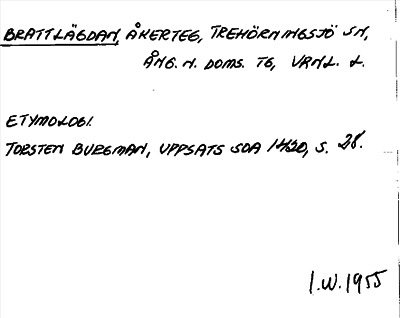 BRATTLÄGDAN, ÅKERTEG, TREHÖRNINGSJÖ SN,
ÅNG. N. DOMS. TG, VRNL. L.
ETYMOLOGI.
TORSTEN BURGMAN, UPPSATS SOA 1420, S. 28.
I.W. 1955